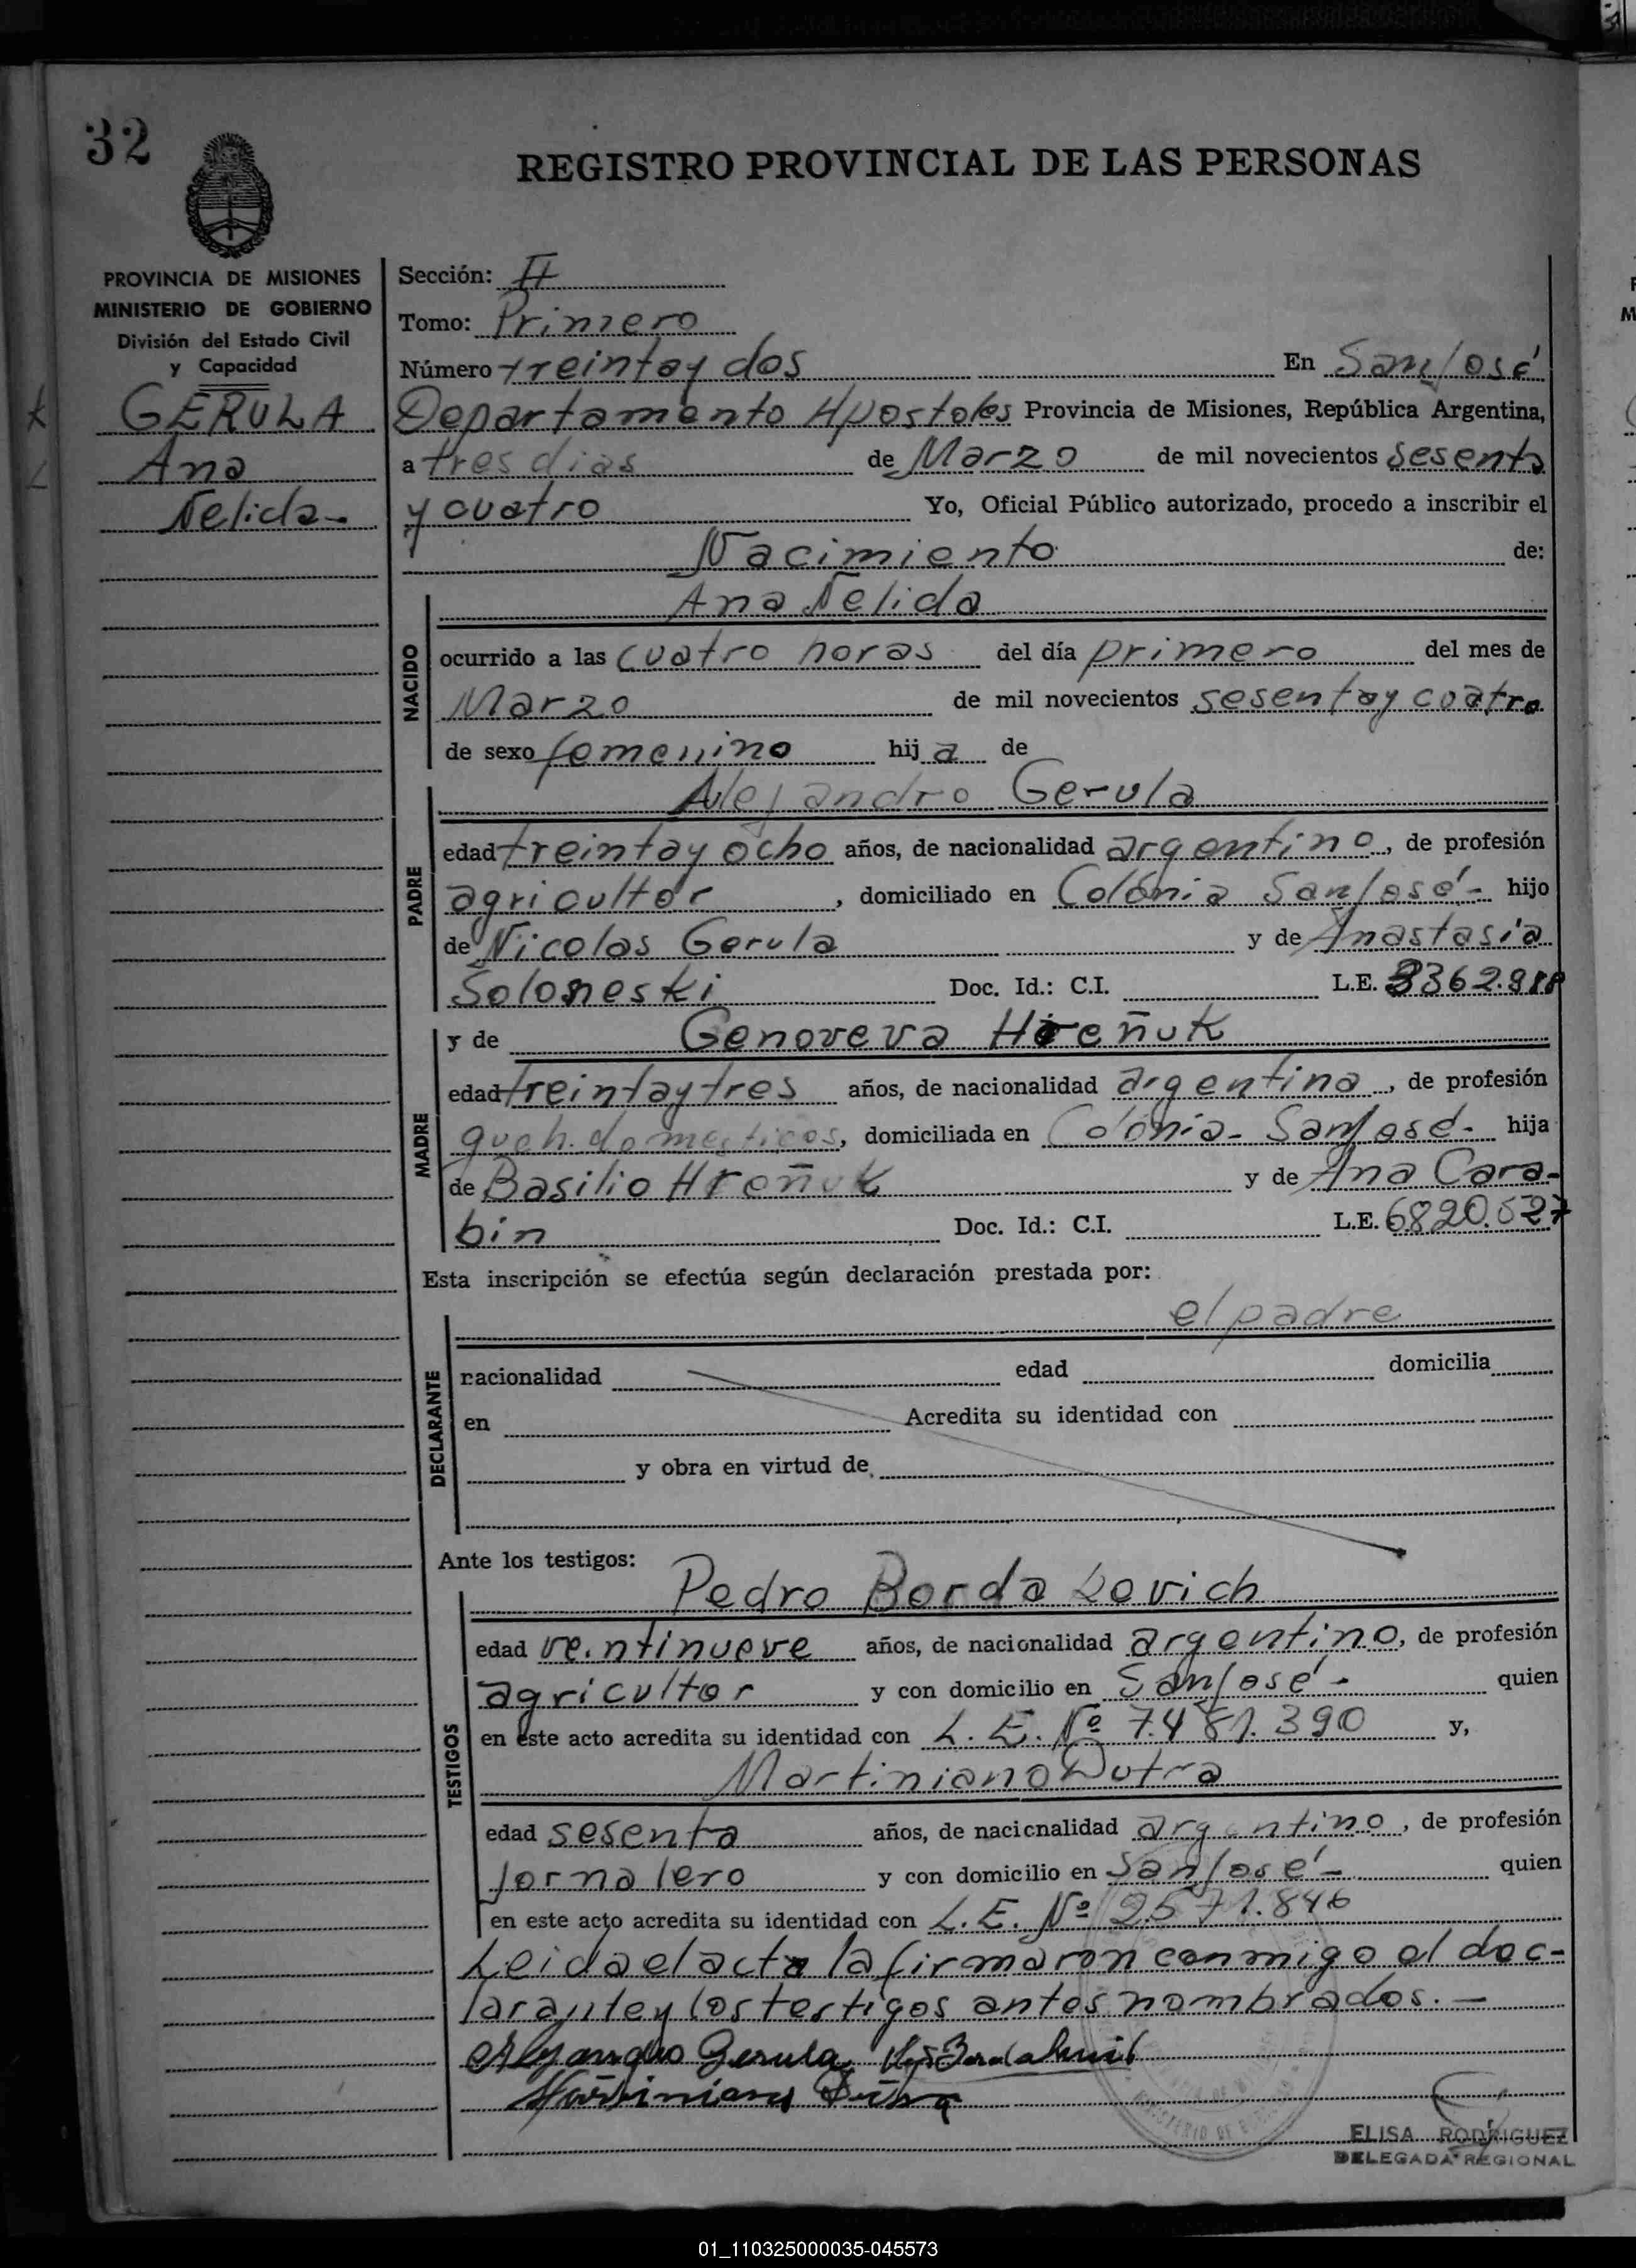 32
REGISTRO PROVINCIAL DE LAS PERSONAS
PROVINCIA DE MISIONES
MINISTERIO DE GOBIERNO
División del Estado Civil
y Capacidad
GERULA
Ana
Ñelida-
Sección: II
Tomo: Primero
Número treintay dos En San José
Departamento Apostoles Provincia de Misiones, República Argentina,
a tres dias de Marzo de mil novecientos sesenta
y cuatro Yo, Oficial Público autorizado, procedo a inscribir el
Nacimiento de:
Ana Ñelida
NACIDO
ocurrido a las cuatro horas del día primero del mes de
Marzo de mil novecientos sesentay cuatro
de sexo femenino hija de
Alejandro Gerula
PADRE
edad treintay ocho años, de nacionalidad argentino, de profesión
agricultor, domiciliado en Colónia San José- hijo
de Nicolas Gerula y de Anastasia
Soloneski Doc. Id.: C.I. L.E. 3362.918
y de Genoveva Hreñuk
MADRE
edad treintaytres años, de nacionalidad argentina, de profesión
queh. domesticos, domiciliada en Colónia- San José- hija
de Basilio Hreñuk y de Ana Cara-
bin Doc. Id.: C.I. L.E. 6820.527
Esta inscripción se efectúa según declaración prestada por:
el padre
DECLARANTE
nacionalidad edad domicilia
en Acredita su identidad con
y obra en virtud de
Ante los testigos:
Pedro Bordakevich
TESTIGOS
edad veintinueve años, de nacionalidad argentino, de profesión
agricultor y con domicilio en San José- quien
en este acto acredita su identidad con L.E. Nº 7.481.390 y,
Martiniano Dutra
edad sesenta años, de nacionalidad argentino, de profesión
Jornalero y con domicilio en San José- quien
en este acto acredita su identidad con L.E. Nº 2571.846
Leida el acta la firmaron conmigo el dec-
larante y los testigos antes nombrados.-
Alejandro Gerula
Martiniano Dutra
ELISA RODRIGUEZ
DELEGADA REGIONAL
01_110325000035-045573